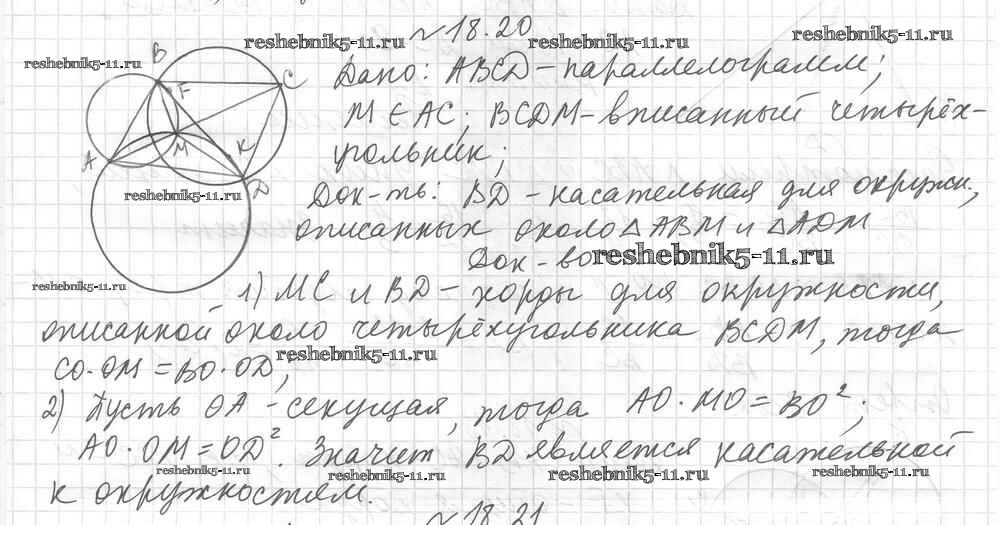 reshebnik5-11.ru
№18.20
reshebnik5-11.ru
reshebnik5-11.ru
reshebnik5-11.ru
B
F
C
A
M
K
D
reshebnik5-11.ru
reshebnik5-11.ru
Дано: ABCD – параллелограмм;
M ∈ AC; BCDM – вписанный четырёх-
угольник;
Док-ть: BD – касательная для окружн.,
описанных около △ABM и △ADM
Док-во
reshebnik5-11.ru
1) MC и BD – хорды для окружности,
описанной около четырёхугольника BCDM, тогда
CO·OM = BO·OD;
reshebnik5-11.ru
2) Пусть OA – секущая, тогда AO·MO = BO²;
AO·OM = OD². Значит BD является касательной
reshebnik5-11.ru
reshebnik5-11.ru
reshebnik5-11.ru
reshebnik5-11.ru
к окружностям.
№18.21